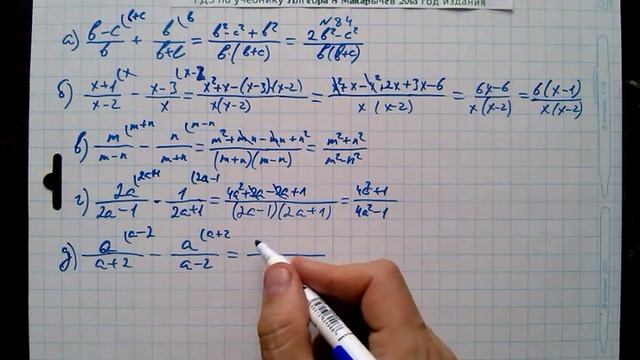 ГДЗ по учебнику Алгебра 8 Макарычев 2013 год издания
№84
а) (b-c)/b (b+c + b/(b+c) (b = (b²-c²+b²)/(b·(b+c)) = (2b²-c²)/(b(b+c))
б) (x+1)/(x-2) (x - (x-3)/x (x-2 = (x²+x-(x-3)(x-2))/(x(x-2)) = (x²+x-x²+2x+3x-6)/(x(x-2)) = (6x-6)/(x(x-2)) = 6(x-1)/(x(x-2))
в) m/(m-n) (m+n - n/(m+n) (m-n = (m²+mn-mn+n²)/((m+n)(m-n)) = (m²+n²)/(m²-n²)
г) 2a/(2a-1) (2a+1 - 1/(2a+1) (2a-1 = (4a²+2a-2a+1)/((2a-1)(2a+1)) = (4a²+1)/(4a²-1)
д) a/(a+2) (a-2 - a/(a-2) (a+2 =